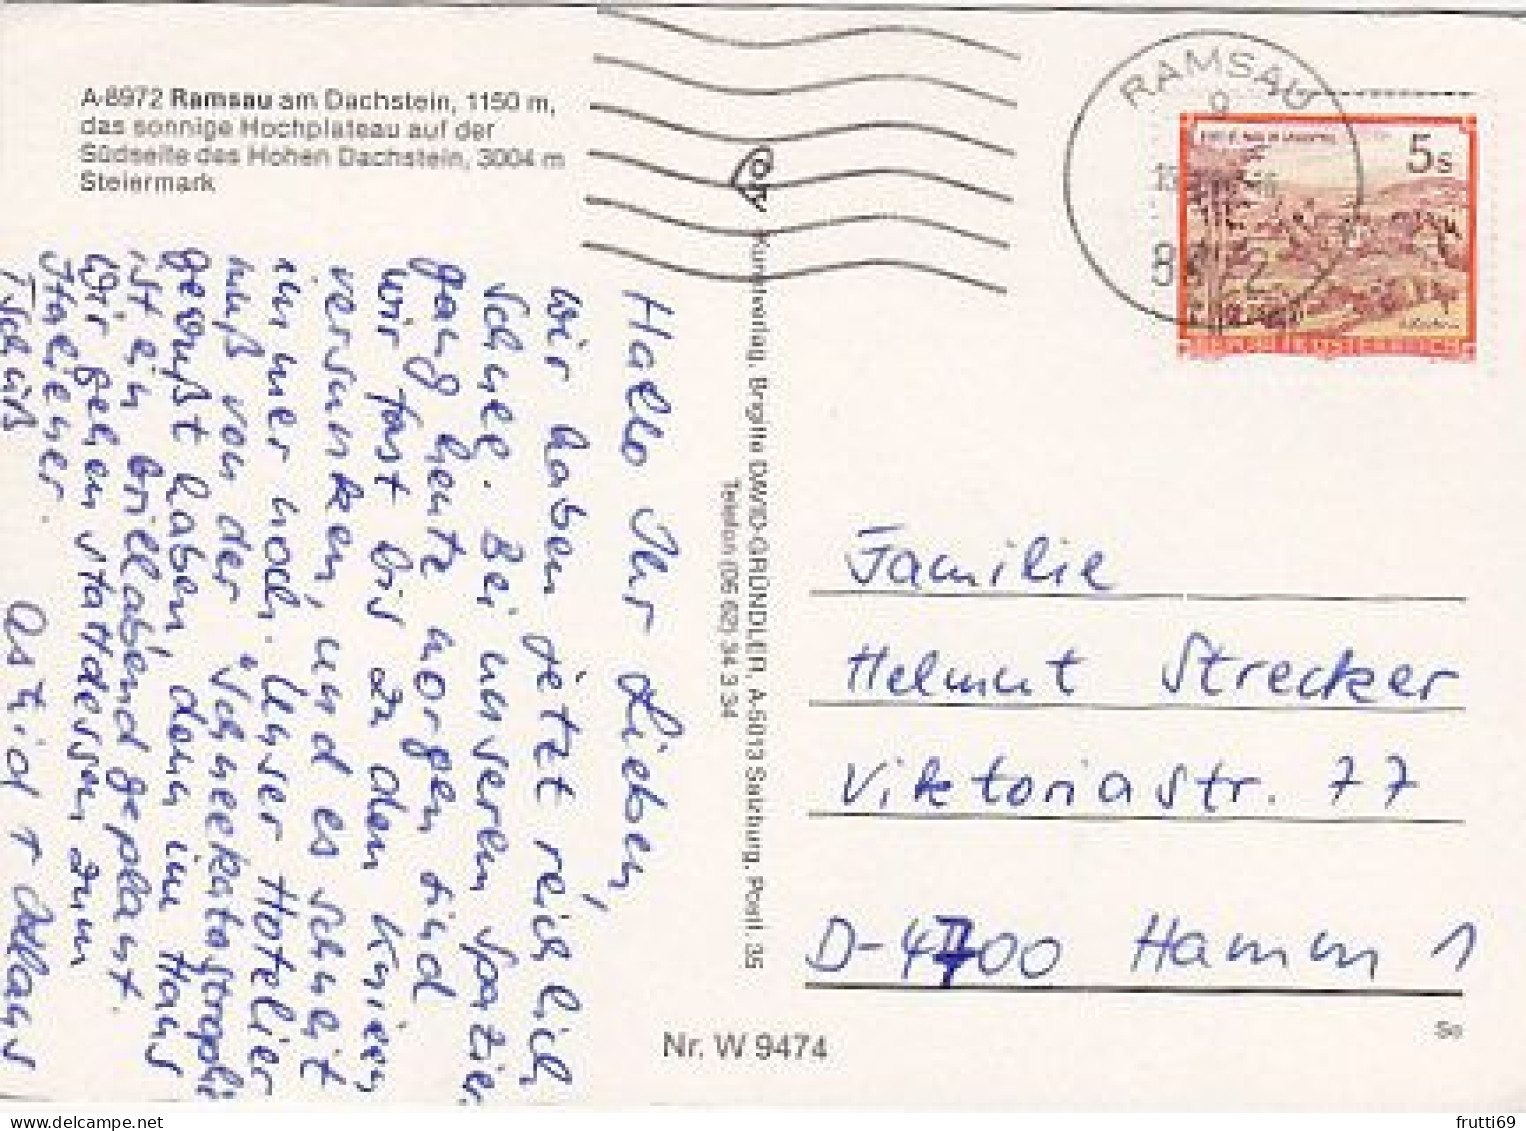 A-8972 Ramsau am Dachstein, 1150 m,
das sonnige Hochplateau auf der
Südseite des Hohen Dachstein, 3004 m
Steiermark
Hallo Ihr Lieben,
wir haben jetzt reichlich
Schnee. Bei unserem Spazier-
gang heute morgen sind
wir fast bis zu den Knieen
versunken, und es schneit
immer noch. Unser Hotelier
muß von der "Schneekatastrophe
gewußt haben, denn im Haus
ist ein Grillabend geplant.
Wir gehen stattdessen zum
Italiener.
Tschüß
Astrid +
Kunstverlag, Brigitte DAVID-GRÜNDLER, A-5013 Salzburg, Postf. 35
Telefon (06 62) 34 3 34
RAMSAU
5s
REPUBLIK ÖSTERREICH
Familie
Helmut Strecker
Viktoriastr. 77
D-4700 Hamm 1
Nr. W 9474
So
frutti69